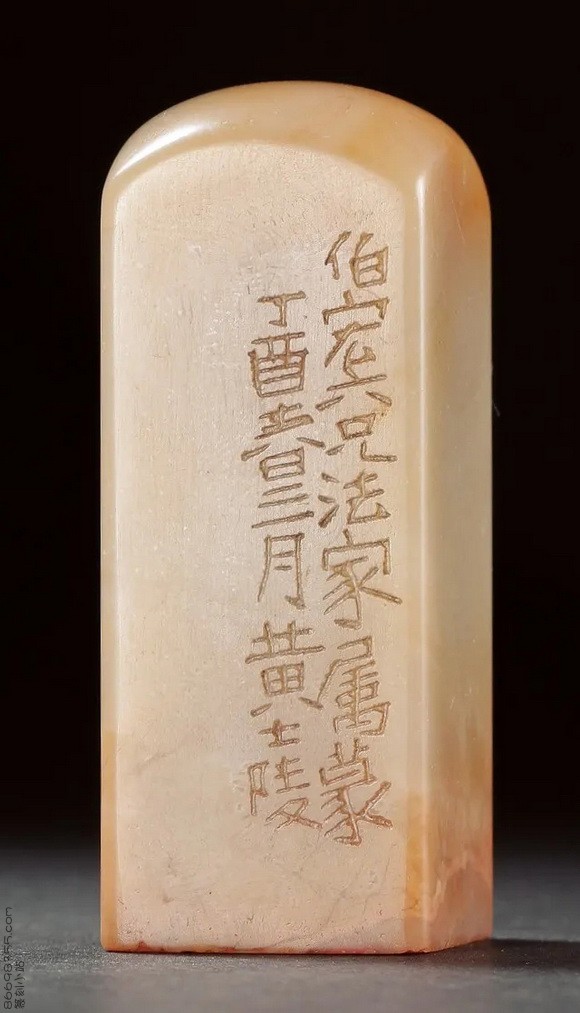 伯宏六兄法家属篆
丁酉春三月黄士陵
篆刻小站